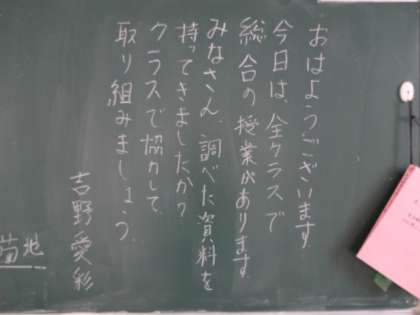 おはようございます
今日は、全クラスで
総合の授業があります。
みなさん、調べた資料を
持ってきましたか?
クラスで協力して、
取り組みましょう。
吉野愛彩
菊池